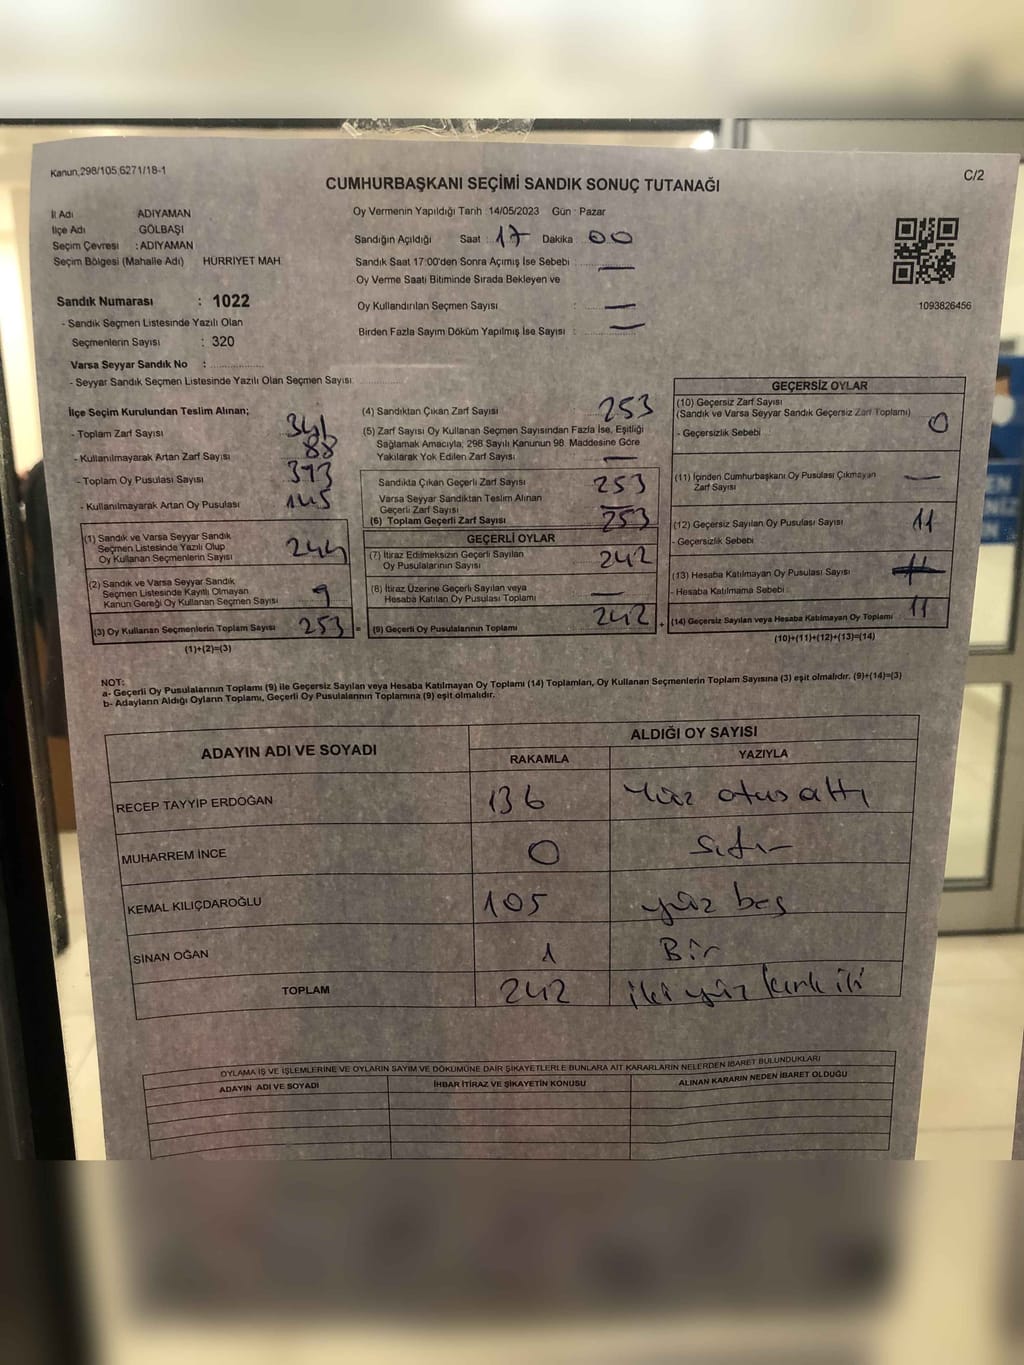 Kanun,298/105,6271/18-1
C/2
CUMHURBAŞKANI SEÇİMİ SANDIK SONUÇ TUTANAĞI
İl Adı ADIYAMAN
İlçe Adı GÖLBAŞI
Seçim Çevresi : ADIYAMAN
Seçim Bölgesi (Mahalle Adı) HÜRRİYET MAH
Sandık Numarası : 1022
- Sandık Seçmen Listesinde Yazılı Olan
Seçmenlerin Sayısı : 320
Varsa Seyyar Sandık No :
- Seyyar Sandık Seçmen Listesinde Yazılı Olan Seçmen Sayısı:
Oy Vermenin Yapıldığı Tarih :14/05/2023 Gün : Pazar
Sandığın Açıldığı Saat : 17 Dakika : 00
Sandık Saat 17:00'den Sonra Açımış İse Sebebi : —
Oy Verme Saati Bitiminde Sırada Bekleyen ve
Oy Kullandırılan Seçmen Sayısı : —
Birden Fazla Sayım Döküm Yapılmış İse Sayısı : —
1093826456
İlçe Seçim Kurulundan Teslim Alınan;
- Toplam Zarf Sayısı 341
- Kullanılmayarak Artan Zarf Sayısı 88
- Toplam Oy Pusulası Sayısı 393
- Kullanılmayarak Artan Oy Pusulası 145
(1) Sandık ve Varsa Seyyar Sandık
Seçmen Listesinde Yazılı Olup
Oy Kullanan Seçmenlerin Sayısı 244
(2) Sandık ve Varsa Seyyar Sandık
Seçmen Listesinde Kayıtlı Olmayan
Kanun Gereği Oy Kullanan Seçmen Sayısı 9
(3) Oy Kullanan Seçmenlerin Toplam Sayısı 253 =
(1)+(2)=(3)
(4) Sandıktan Çıkan Zarf Sayısı : 253
(5) Zarf Sayısı Oy Kullanan Seçmen Sayısından Fazla İse, Eşitliği
Sağlamak Amacıyla; 298 Sayılı Kanunun 98. Maddesine Göre
Yakılarak Yok Edilen Zarf Sayısı —
Sandıkta Çıkan Geçerli Zarf Sayısı 253
Varsa Seyyar Sandıktan Teslim Alınan
Geçerli Zarf Sayısı —
(6) Toplam Geçerli Zarf Sayısı 253
GEÇERLİ OYLAR
(7) İtiraz Edilmeksizin Geçerli Sayılan
Oy Pusulalarının Sayısı 242
(8) İtiraz Üzerine Geçerli Sayılan veya
Hesaba Katılan Oy Pusulası Toplamı —
(9) Geçerli Oy Pusulalarının Toplamı 242 +
GEÇERSİZ OYLAR
(10) Geçersiz Zarf Sayısı
(Sandık ve Varsa Seyyar Sandık Geçersiz Zarf Toplamı) 0
- Geçersizlik Sebebi
(11) İçinden Cumhurbaşkanı Oy Pusulası Çıkmayan
Zarf Sayısı —
(12) Geçersiz Sayılan Oy Pusulası Sayısı 11
- Geçersizlik Sebebi
(13) Hesaba Katılmayan Oy Pusulası Sayısı
- Hesaba Katılmama Sebebi
(14) Geçersiz Sayılan veya Hesaba Katılmayan Oy Toplamı 11
(10)+(11)+(12)+(13)=(14)
NOT:
a- Geçerli Oy Pusulalarının Toplamı (9) ile Geçersiz Sayılan veya Hesaba Katılmayan Oy Toplamı (14) Toplamları, Oy Kullanan Seçmenlerin Toplam Sayısına (3) eşit olmalıdır. (9)+(14)=(3)
b- Adayların Aldığı Oyların Toplamı, Geçerli Oy Pusulalarının Toplamına (9) eşit olmalıdır.
ADAYIN ADI VE SOYADI ALDIĞI OY SAYISI
RAKAMLA YAZIYLA
RECEP TAYYİP ERDOĞAN 136 Yüz otuz altı
MUHARREM İNCE 0 Sıfır
KEMAL KILIÇDAROĞLU 105 yüz beş
SİNAN OĞAN 1 Bir
TOPLAM 242 iki yüz kırk iki
OYLAMA İŞ VE İŞLEMLERİNE VE OYLARIN SAYIM VE DÖKÜMÜNE DAİR ŞİKAYETLERLE BUNLARA AİT KARARLARIN NELERDEN İBARET BULUNDUKLARI
ADAYIN ADI VE SOYADI İHBAR İTİRAZ VE ŞİKAYETİN KONUSU ALINAN KARARIN NEDEN İBARET OLDUĞU